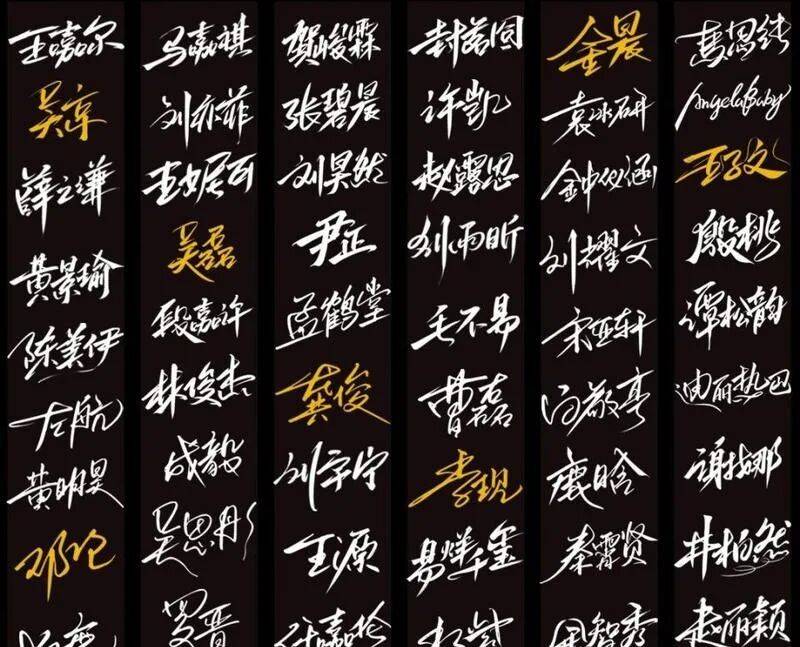 王嘉尔
吴京
薛之谦
黄景瑜
陈美伊
左航
黄明昊
邓论
马嘉祺
刘亦菲
吴磊
段嘉许
林俊杰
成毅
吴思彤
罗晋
贺峻霖
张碧晨
刘昊然
尹正
孟鹤堂
龚俊
刘宇宁
王源
任嘉伦
封茗囧
许凯
赵露思
刘雨昕
毛不易
曹磊
李现
易烊千玺
金晨
袁冰妍
刘耀文
宋亚轩
汤敬亭
鹿晗
秦霄贤
周智秀
AngelaBaby
王子文
殷桃
谭松韵
迪丽热巴
谢娜
井柏然
赵丽颖